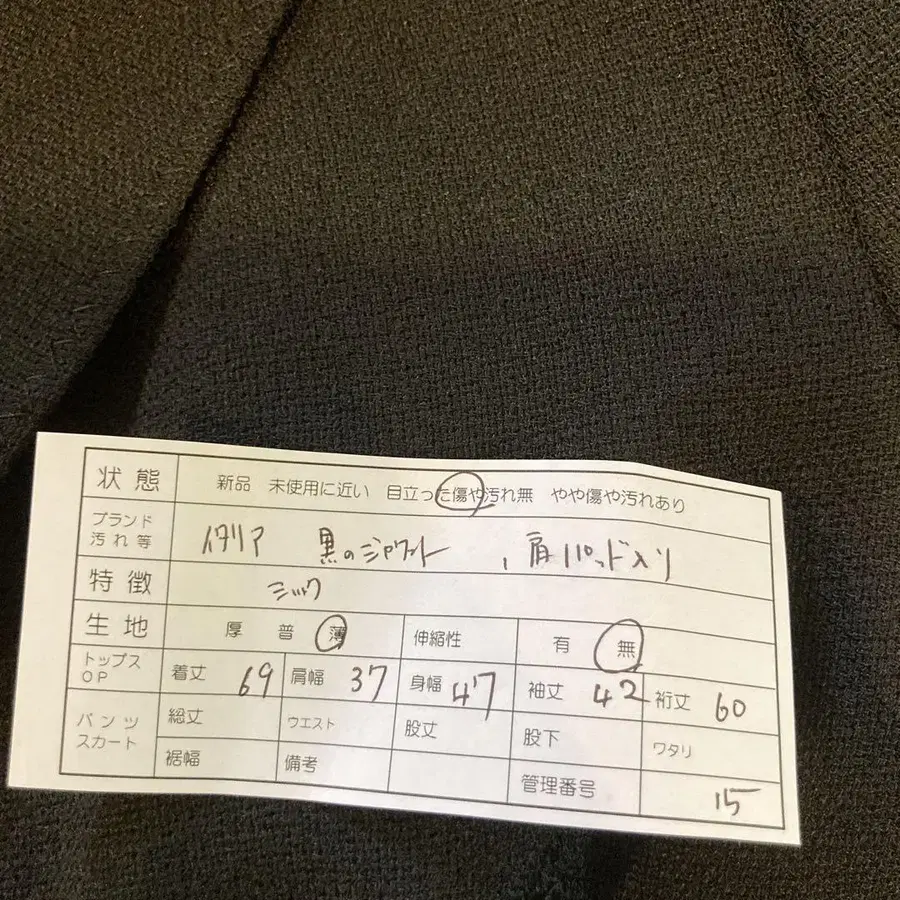 状態 新品 未使用に近い 目立った傷や汚れ無 やや傷や汚れあり
ブランド
汚れ等 イタリア 黒のジャケット、肩パッド入り
特徴 シック
生地 厚 普 薄 伸縮性 有 無
トップス
OP 着丈 69 肩幅 37 身幅 47 袖丈 42 裄丈 60
パンツ
スカート 総丈 ウエスト 股丈 股下 ワタリ
裾幅 備考 管理番号 15